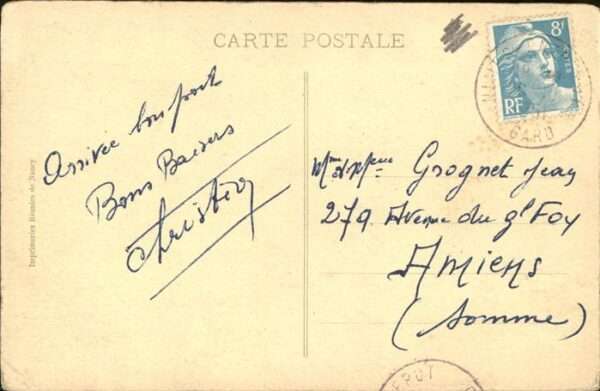 CARTE POSTALE
Arrivée bon port
Bons Baisers
Christian
Imprimeries Réunies de Nancy
8F
RF
GARD
Mr et Mme Grognet Jean
279 Avenue du gl Foy
Amiens
(Somme)